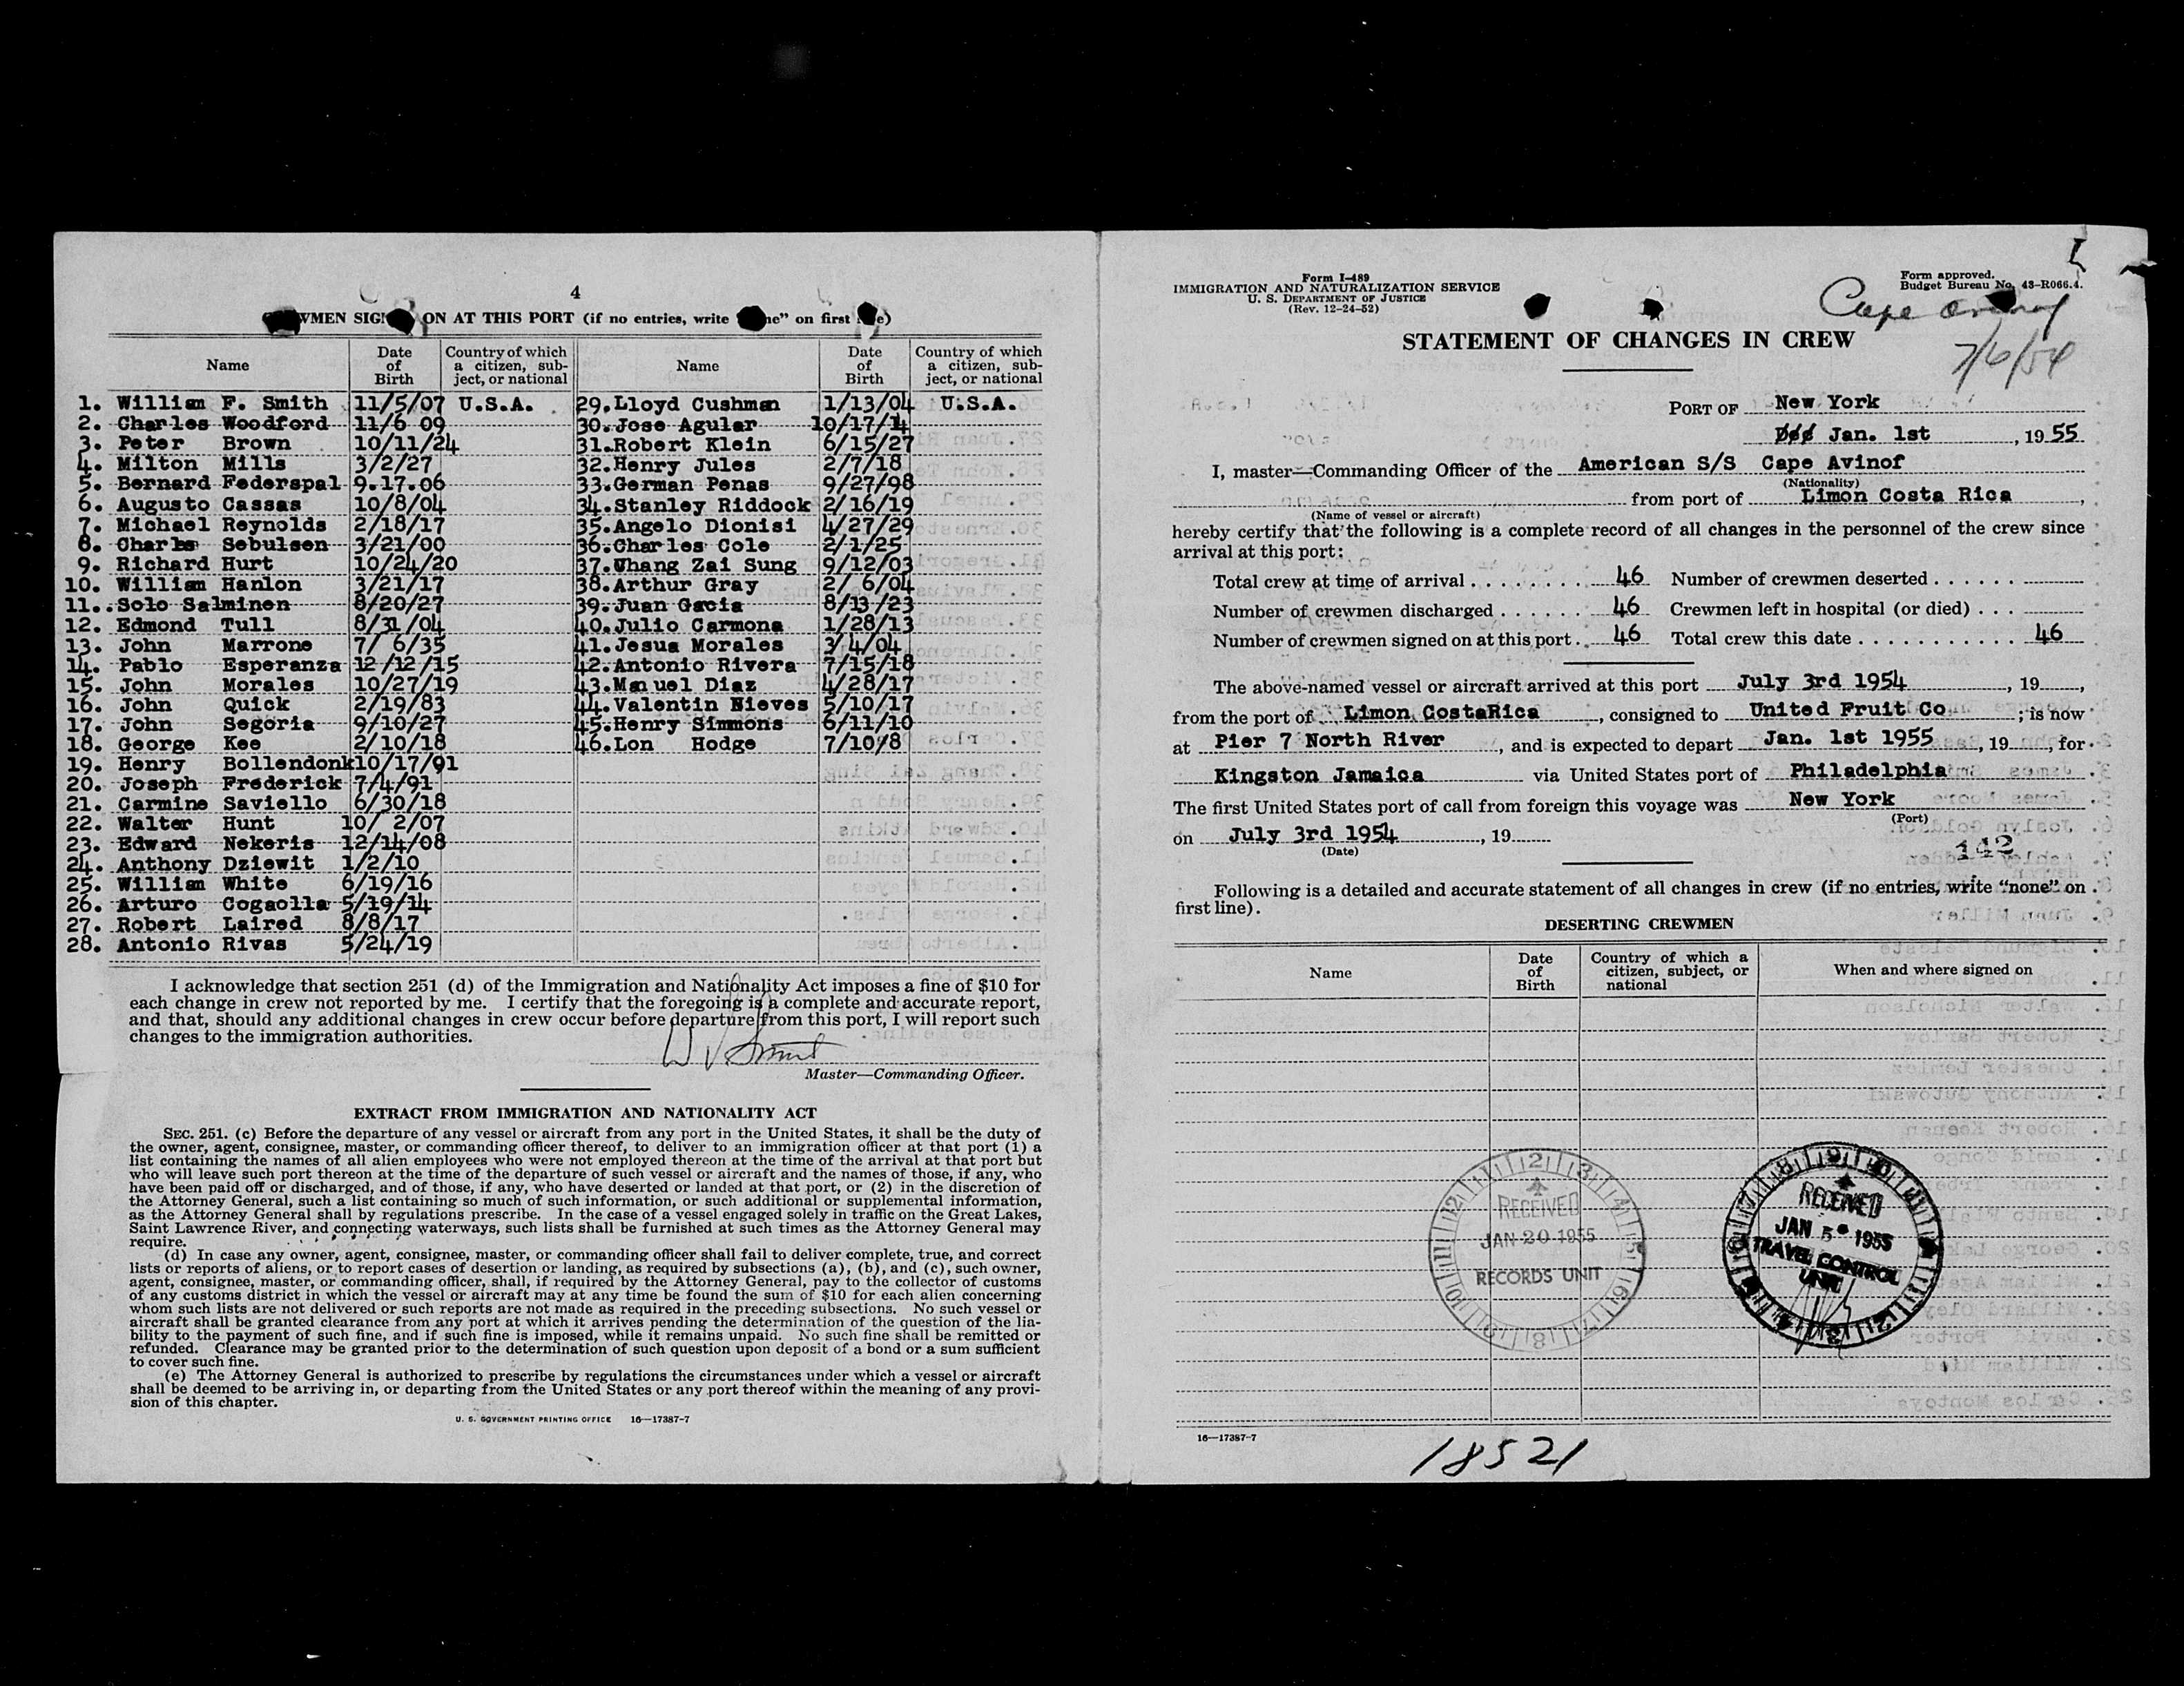 4
CREWMEN SIGNED ON AT THIS PORT (if no entries, write "none" on first line)
Name Date of Birth Country of which a citizen, subject, or national Name Date of Birth Country of which a citizen, subject, or national
1. William F. Smith 11/5/07 U.S.A. 29. Lloyd Cushman 1/13/04 U.S.A.
2. Charles Woodford 11/6 09 30. Jose Agular 10/17/14
3. Peter Brown 10/11/24 31. Robert Klein 6/15/27
4. Milton Mills 3/2/27 32. Henry Jules 2/7/18
5. Bernard Federspal 9.17.06 33. German Penas 9/27/98
6. Augusto Cassas 10/8/04 34. Stanley Riddock 2/16/19
7. Michael Reynolds 2/18/17 35. Angelo Dionisi 4/27/29
8. Charles Sebulsen 3/21/00 36. Charles Cole 2/1/25
9. Richard Hurt 10/24/20 37. Zai Sung 9/12/03
10. William Hanlon 3/21/17 38. Arthur Gray 2/ 6/04
11. Solo Salminen 8/20/27 39. Juan Gacia 8/13/23
12. Edmond Tull 8/31/04 40. Julio Carmona 1/28/13
13. John Marrone 7/ 6/35 41. Jesua Morales 3/4/04
14. Pablo Esperanza 12/12/15 42. Antonio Rivera 7/15/18
15. John Morales 10/27/19 43. Manuel Diaz 4/28/17
16. John Quick 2/19/83 44. Valentin Nieves 5/10/17
17. John Segoria 9/10/27 45. Henry Simmons 6/11/10
18. George Kee 2/10/18 46. Lon Hodge 7/10/8
19. Henry Bollendonk 10/17/91
20. Joseph Frederick 7/4/91
21. Carmine Saviello 6/30/18
22. Walter Hunt 10/ 2/07
23. Edward Nekeris 12/14/08
24. Anthony Dziewit 1/2/10
25. William White 6/19/16
26. Arturo Cogaolla 5/19/14
27. Robert Laired 8/8/17
28. Antonio Rivas 5/24/19
I acknowledge that section 251 (d) of the Immigration and Nationality Act imposes a fine of $10 for
each change in crew not reported by me. I certify that the foregoing is a complete and accurate report,
and that, should any additional changes in crew occur before departure from this port, I will report such
changes to the immigration authorities.
Master—Commanding Officer.
EXTRACT FROM IMMIGRATION AND NATIONALITY ACT
SEC. 251. (c) Before the departure of any vessel or aircraft from any port in the United States, it shall be the duty of
the owner, agent, consignee, master, or commanding officer thereof, to deliver to an immigration officer at that port (1) a
list containing the names of all alien employees who were not employed thereon at the time of the arrival at that port but
who will leave such port thereon at the time of the departure of such vessel or aircraft and the names of those, if any, who
have been paid off or discharged, and of those, if any, who have deserted or landed at that port, or (2) in the discretion of
the Attorney General, such a list containing so much of such information, or such additional or supplemental information,
as the Attorney General shall by regulations prescribe. In the case of a vessel engaged solely in traffic on the Great Lakes,
Saint Lawrence River, and connecting waterways, such lists shall be furnished at such times as the Attorney General may
require.
(d) In case any owner, agent, consignee, master, or commanding officer shall fail to deliver complete, true, and correct
lists or reports of aliens, or to report cases of desertion or landing, as required by subsections (a), (b), and (c), such owner,
agent, consignee, master, or commanding officer, shall, if required by the Attorney General, pay to the collector of customs
of any customs district in which the vessel or aircraft may at any time be found the sum of $10 for each alien concerning
whom such lists are not delivered or such reports are not made as required in the preceding subsections. No such vessel or
aircraft shall be granted clearance from any port at which it arrives pending the determination of the question of the lia-
bility to the payment of such fine, and if such fine is imposed, while it remains unpaid. No such fine shall be remitted or
refunded. Clearance may be granted prior to the determination of such question upon deposit of a bond or a sum sufficient
to cover such fine.
(e) The Attorney General is authorized to prescribe by regulations the circumstances under which a vessel or aircraft
shall be deemed to be arriving in, or departing from the United States or any port thereof within the meaning of any provi-
sion of this chapter.
U. S. GOVERNMENT PRINTING OFFICE 16—17387-7
Form I-489
IMMIGRATION AND NATURALIZATION SERVICE
U. S. DEPARTMENT OF JUSTICE
(Rev. 12-24-52)
Form approved.
Budget Bureau No. 43-R066.4.
Cape Avinof
7/6/54
STATEMENT OF CHANGES IN CREW
PORT OF New York
Jan. 1st, 19 55
I, master—Commanding Officer of the American S/S Cape Avinof
(Nationality)
from port of Limon Costa Rica,
(Name of vessel or aircraft)
hereby certify that the following is a complete record of all changes in the personnel of the crew since
arrival at this port:
Total crew at time of arrival 46 Number of crewmen deserted
Number of crewmen discharged 46 Crewmen left in hospital (or died)
Number of crewmen signed on at this port 46 Total crew this date 46
The above-named vessel or aircraft arrived at this port July 3rd 1954, 19,
from the port of Limon CostaRica, consigned to United Fruit Co; is now
at Pier 7 North River, and is expected to depart Jan. 1st 1955, 19, for
Kingston Jamaica via United States port of Philadelphia
The first United States port of call from foreign this voyage was New York
(Port)
on July 3rd 1954, 19
(Date)
142
Following is a detailed and accurate statement of all changes in crew (if no entries, write "none" on
first line).
DESERTING CREWMEN
Name Date of Birth Country of which a citizen, subject, or national When and where signed on
RECEIVED
JAN 20 1955
RECORDS UNIT
RECEIVED
JAN 5 1955
TRAVEL CONTROL
UNIT
16—17387-7
18521